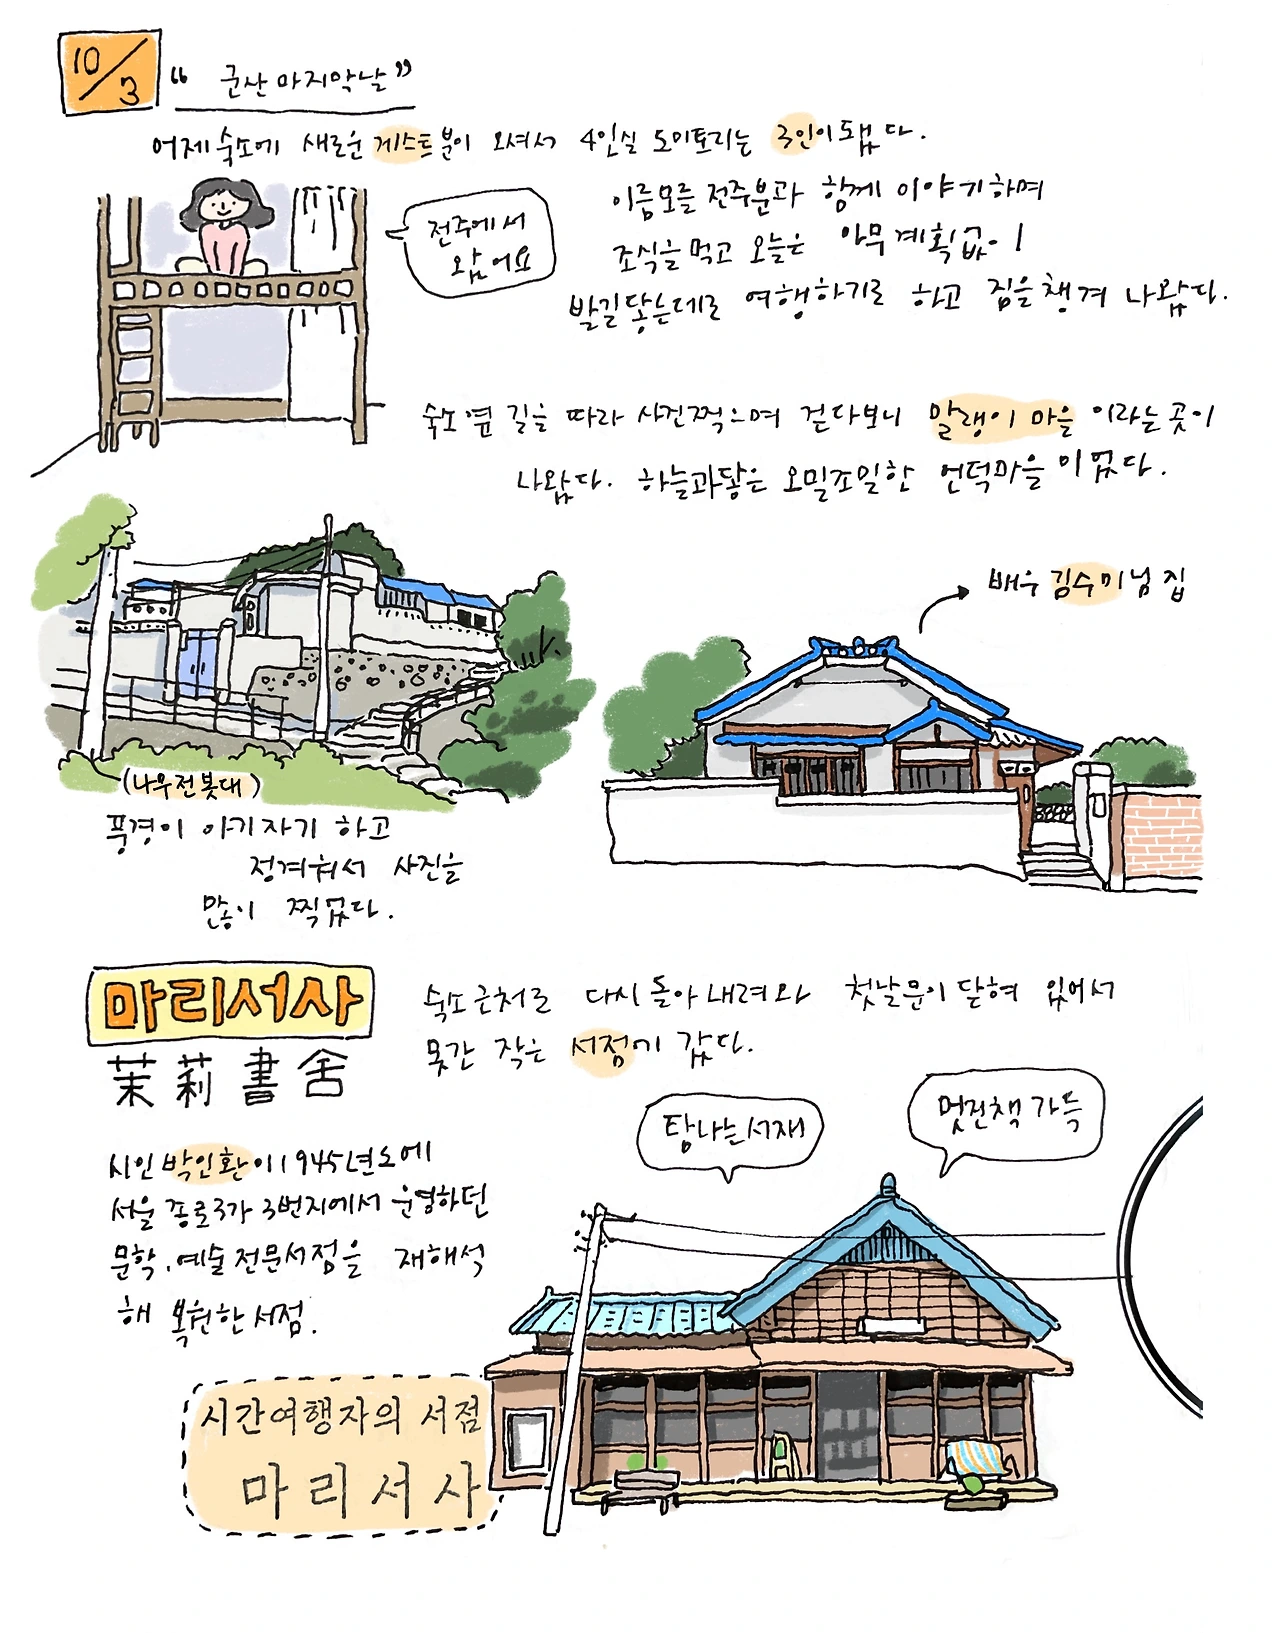 10/3
“ 군산 마지막날 ”
어제 숙소에 새로운 게스트분이 오셔서 4인실 도미토리는 3인이 됐다.
전주에서
왔어요
이름모를 전주분과 함께 이야기하며
조식을 먹고 오늘은 아무계획 없이
발길닿는데로 여행하기로 하고 짐을 챙겨 나왔다.
숙소 옆 길을 따라 사진찍으며 걷다보니 말랭이 마을 이라는 곳이
나왔다. 하늘과 닿은 오밀조밀한 언덕마을이었다.
배우 김수미님 집
(나무전봇대)
풍경이 아기자기 하고
정겨워서 사진을
많이 찍었다.
마리서사
茉莉書舍
숙소 근처로 다시 돌아 내려와 첫날 문이 닫혀 있어서
못간 작은 서점에 갔다.
탐나는 서재
멋진책 가득
시인 박인환이 1945년도에
서울 종로3가 3번지에서 운영하던
문학, 예술 전문서점을 재해석
해 복원한 서점.
시간여행자의 서점
마리서사